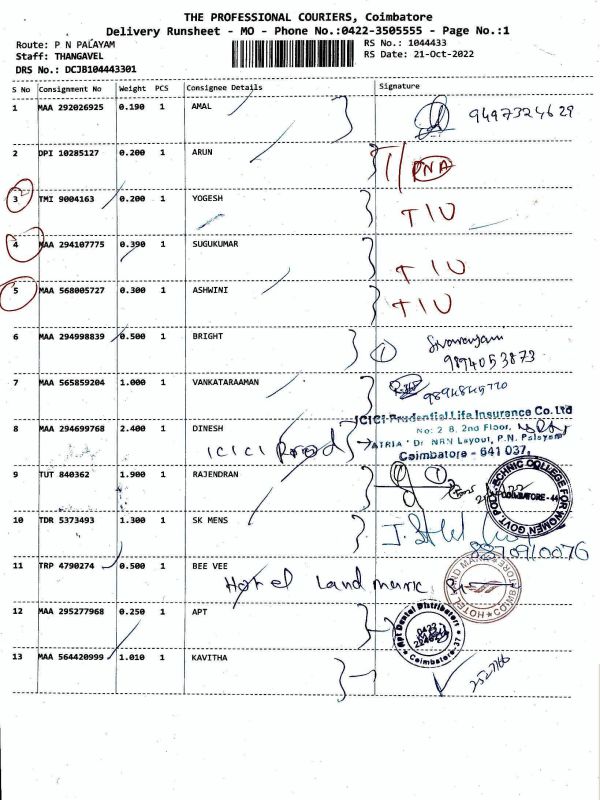 THE PROFESSIONAL COURIERS, Coimbatore
Delivery Runsheet - MO - Phone No.:0422-3505555 - Page No.:1
Route: P N PALAYAM
RS No.: 1044433
Staff: THANGAVEL
RS Date: 21-Oct-2022
DRS No.: DCJB104443301
S No Consignment No Weight PCS Consignee Details Signature
1 MAA 292026925 0.190 1 AMAL 9497324629
2 DPI 10285127 0.200 1 ARUN DNA
3 TMI 9004163 0.200 1 YOGESH TIU
4 MAA 294107775 0.390 1 SUGUKUMAR TIU
5 MAA 568005727 0.300 1 ASHWINI TIU
6 MAA 294998839 0.500 1 BRIGHT 1
9894053873
7 MAA 565859204 1.000 1 VANKATARAAMAN
ICICI Prudential Life Insurance Co. Ltd
8 MAA 294699768 2.400 1 DINESH No: 2 B, 2nd Floor,
ICICI Prod "ATRIA" Dr NRN Layout, P.N. Palayam
Coimbatore - 641 037.
9 TUT 840362 1.900 1 RAJENDRAN 1
POLYTECHNIC COLLEGE FOR WOMEN GOVT
COIMBATORE - 44
10 TDR 5373493 1.300 1 SK MENS
8870910076
11 TRP 4790274 0.500 1 BEE VEE
Hotel Land Mark
HOTEL LAND MARK COIMBATORE
12 MAA 295277968 0.250 1 APT
Apt Dental Distributors
0422
Coimbatore-37
13 MAA 564420999 1.010 1 KAVITHA